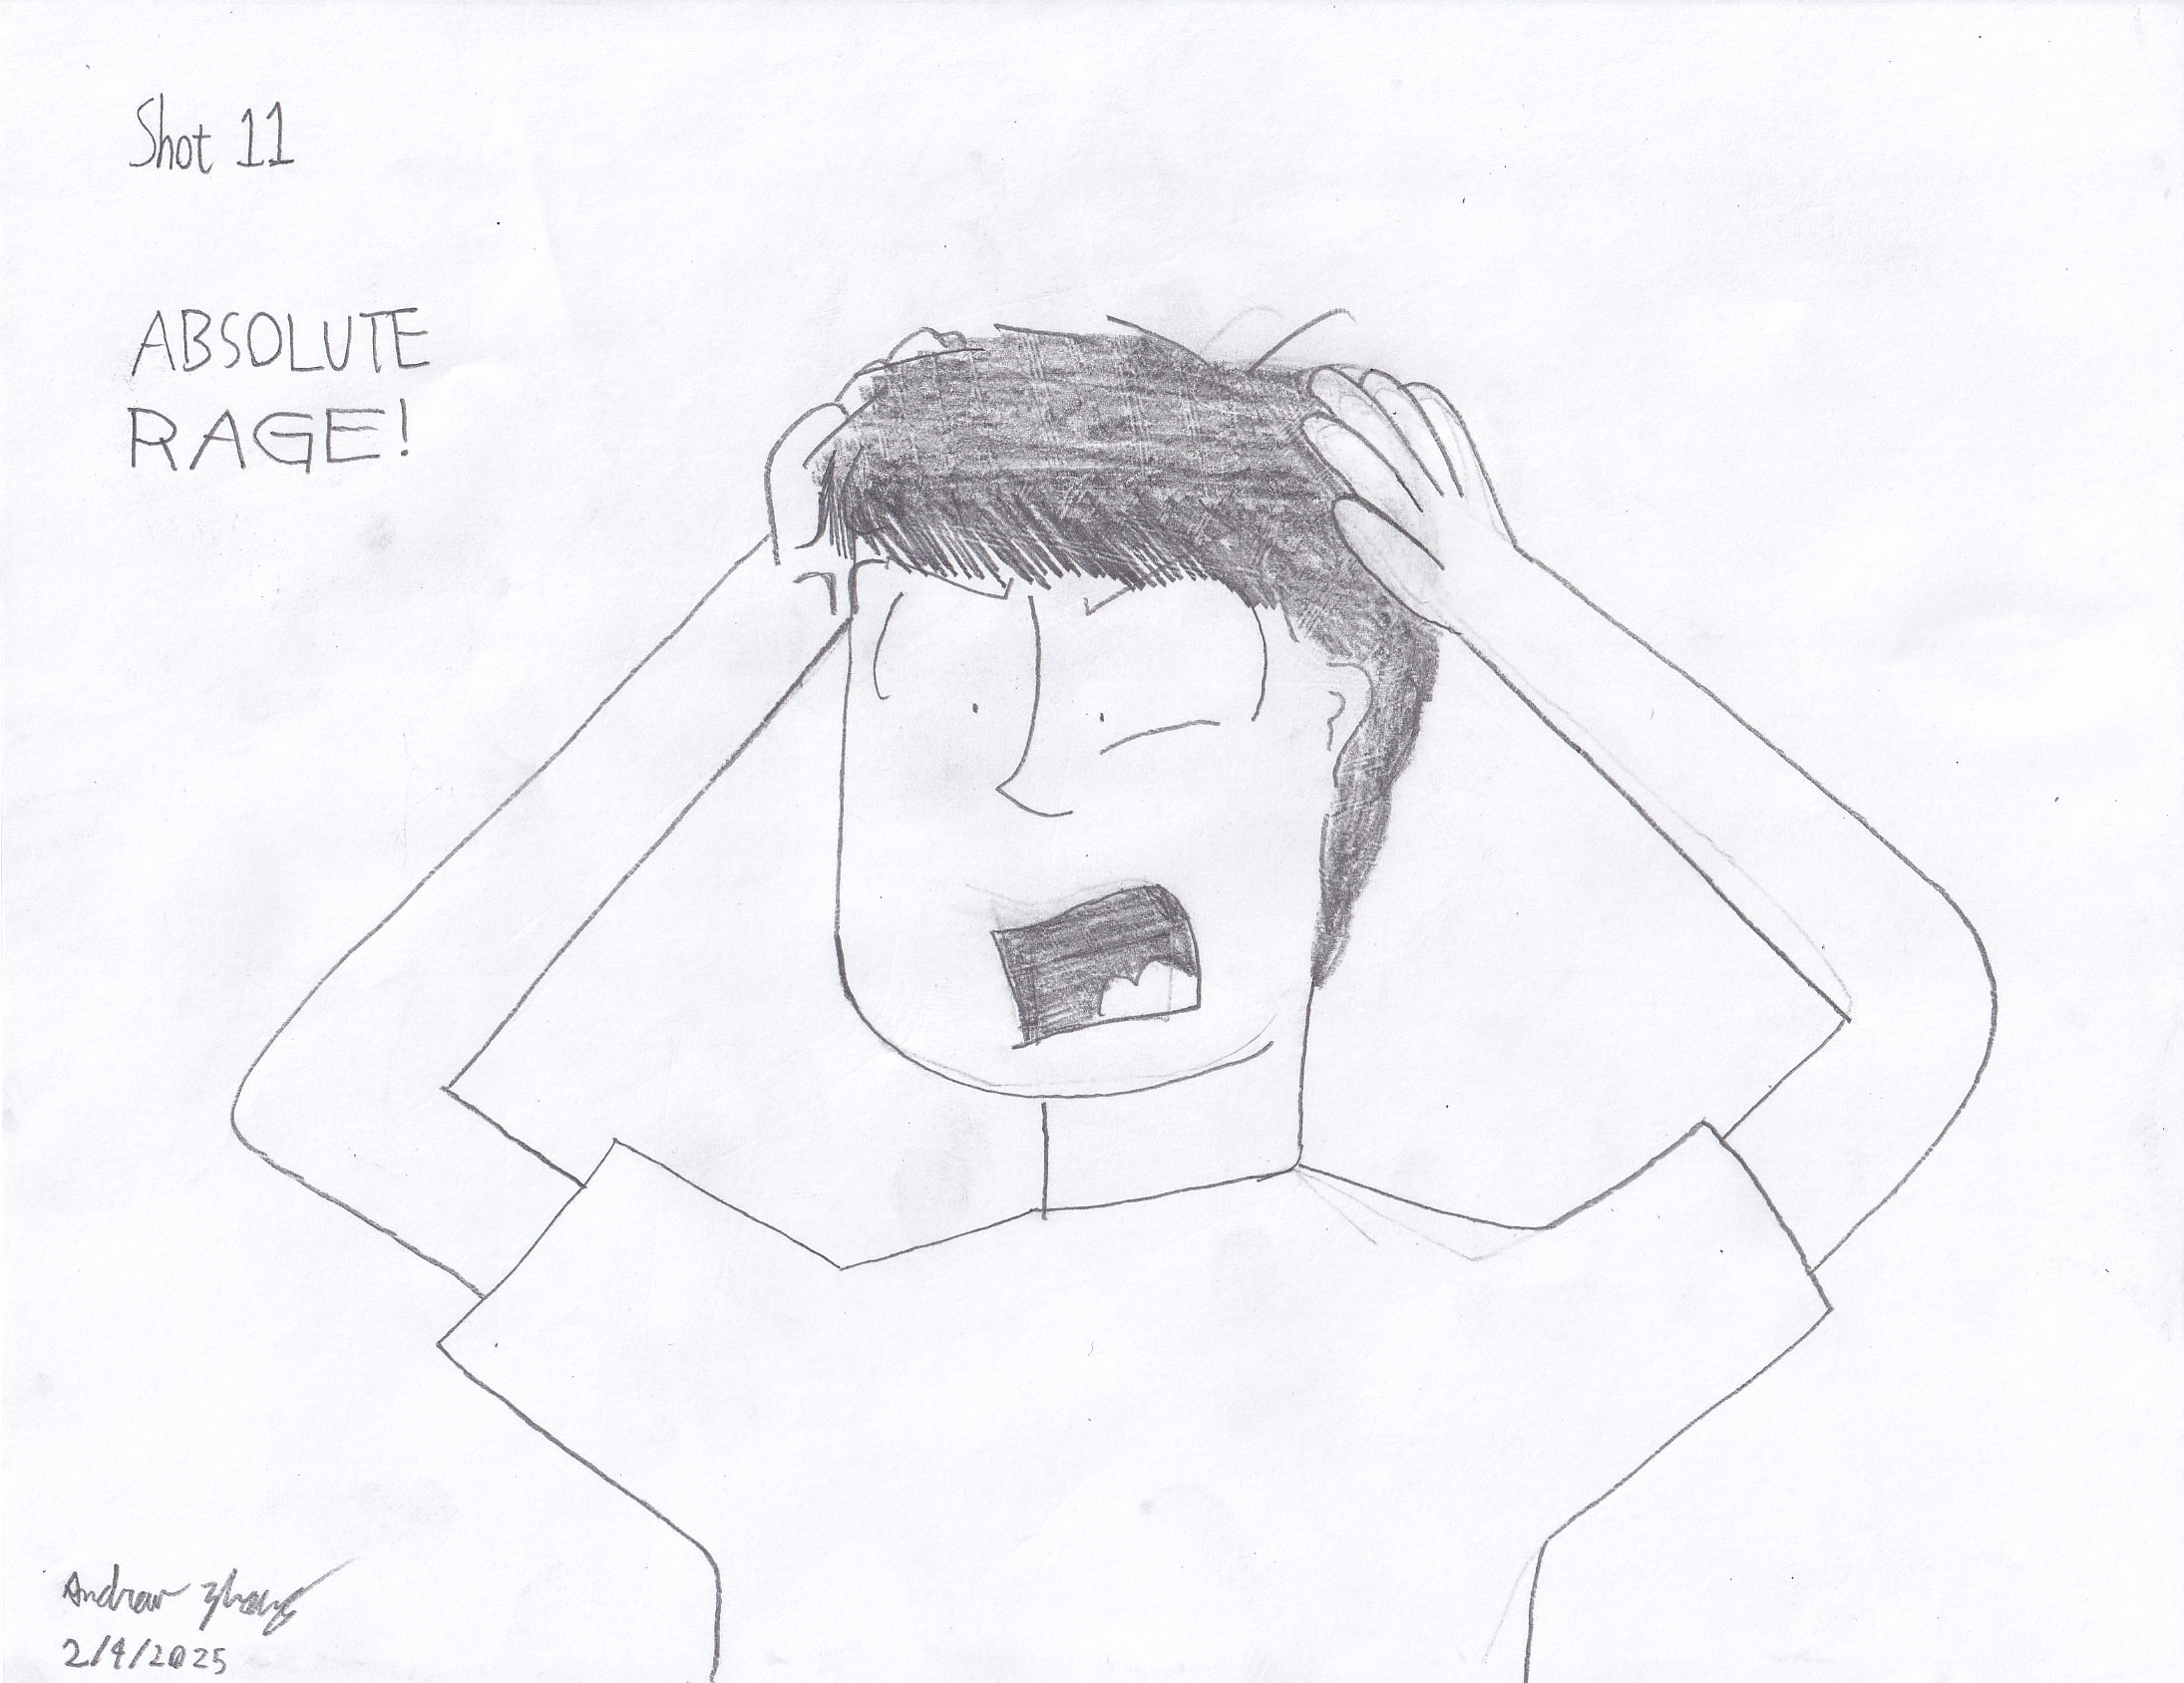 Shot 11
ABSOLUTE
RAGE!
Andrew Zhang
2/4/2025